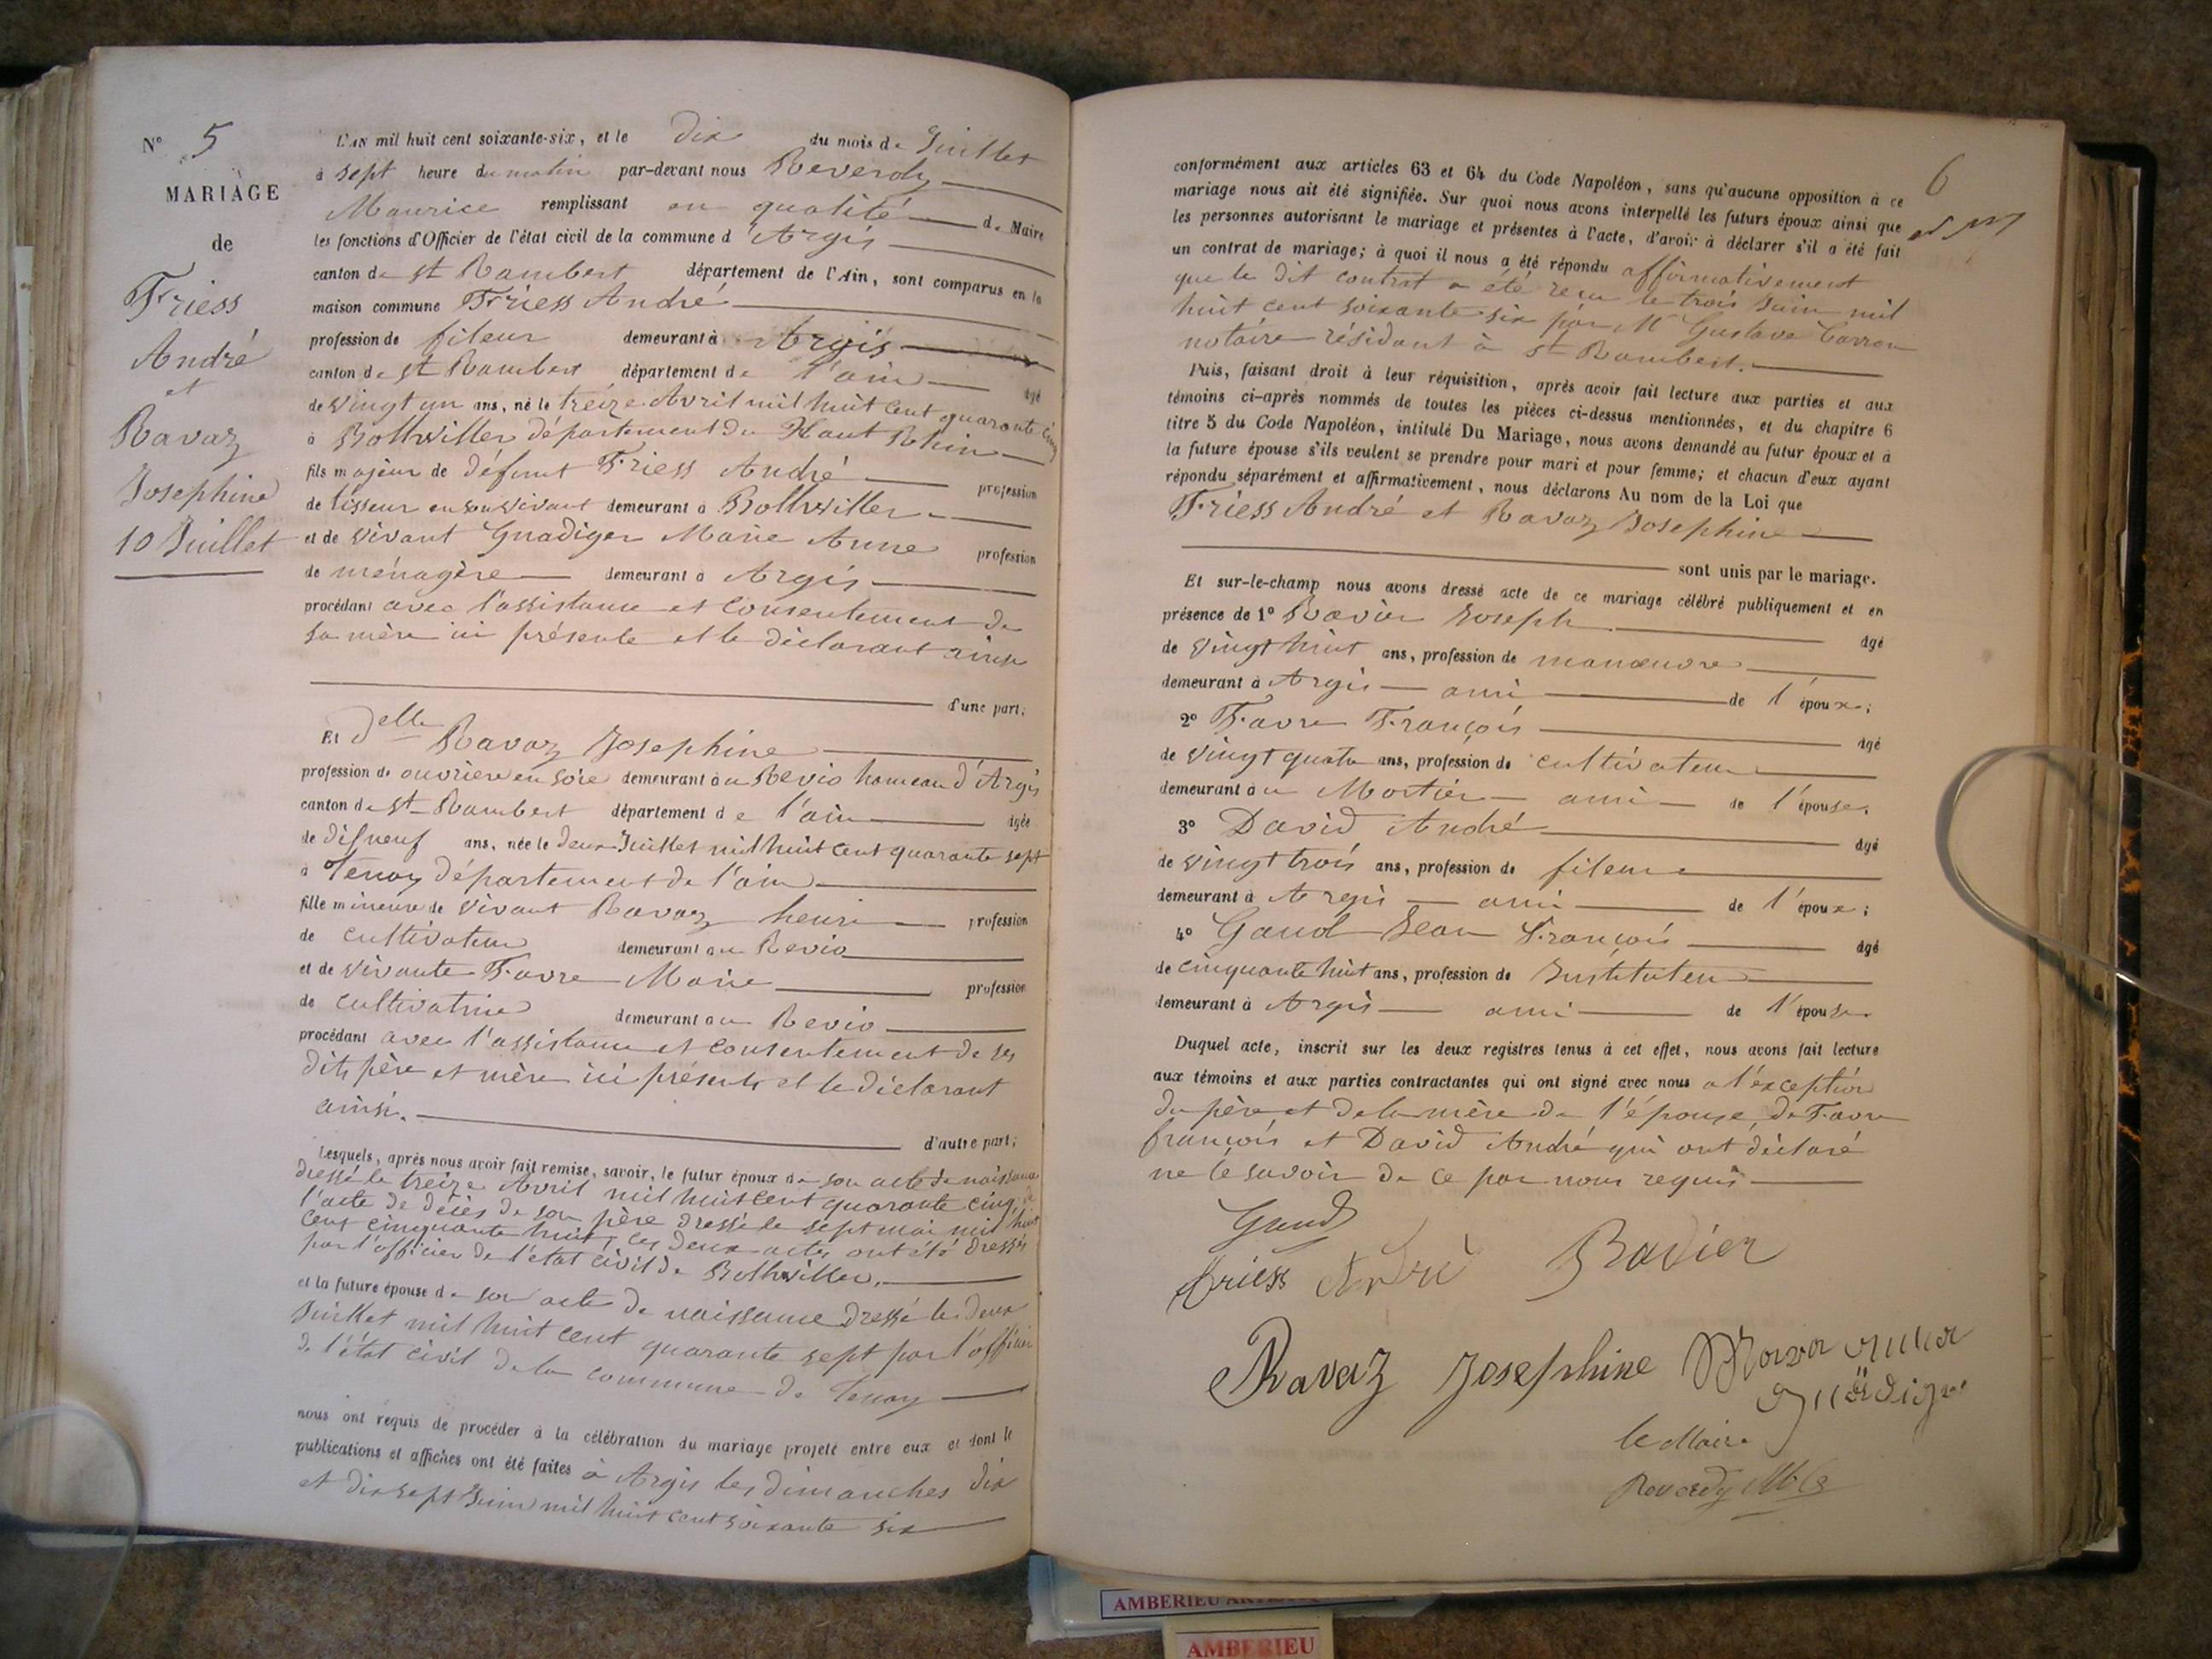 N° 5
MARIAGE
de
Friess
André
et
Ravaz
Josephine
10 Juillet
L'AN mil huit cent soixante-six, et le dix du mois de Juillet
à sept heure du matin par-devant nous Reverdy
Maurice remplissant en qualité de Maire
les fonctions d'Officier de l'état civil de la commune d'Argis
canton de st Rambert département de l'Ain, sont comparus en la
maison commune Friess André
profession de fileur demeurant à Argis
canton de st Rambert département de l'ain âgé
de vingt un ans, né le treize Avril mil huit cent quarante cinq
à Bollwiller département du Haut Rhin
fils majeur de défunt Friess André profession
de tisseur en son vivant demeurant à Bollwiller
et de vivant Gnadiger Marie Anne profession
de ménagère demeurant à Argis
procédant avec l'assistance et consentement de
sa mère ici présente et le déclarant ainsi
d'une part;
Et delle Ravaz Josephine
profession de ouvriere en soie demeurant au Revio hameau d'Argis
canton de st Rambert département de l'ain âgée
de disneuf ans, née le deux Juillet mil huit cent quarante sept
à Tenay département de l'ain
fille mineure de vivant Ravaz henri profession
de cultivateur demeurant au Revio
et de vivante Favre Marie profession
de cultivatrice demeurant au Revio
procédant avec l'assistance et consentement de ses
dits père et mère ici présents et le déclarant
ainsi.
d'autre part;
Lesquels, après nous avoir fait remise, savoir, le futur époux de son acte de naissance
dressé le treize Avril mil huit cent quarante cinq, de
l'acte de décès de son père dressé le sept mai mil huit
cent cinquante huit, ces deux actes ont été dressés
par l'officier de l'état civil de Bollwiller.
et la future épouse de son acte de naissance dressé le deux
Juillet mil huit cent quarante sept par l'officier
de l'état civil de la commune de Tenay
nous ont requis de procéder à la célébration du mariage projeté entre eux et dont les
publications et affiches ont été faites à Argis les dimanches dix
et dix sept Juin mil huit cent soixante six
6
conformément aux articles 63 et 64 du Code Napoléon, sans qu'aucune opposition à ce
mariage nous ait été signifiée. Sur quoi nous avons interpellé les futurs époux ainsi que
les personnes autorisant le mariage et présentes à l'acte, d'avoir à déclarer s'il a été fait
un contrat de mariage; à quoi il nous a été répondu affirmativement
que le dit contrat a été reçu le trois Juin mil
huit cent soixante six par Mr Gustave Carron
notaire résidant à st Rambert.
Puis, faisant droit à leur réquisition, après avoir fait lecture aux parties et aux
témoins ci-après nommés de toutes les pièces ci-dessus mentionnées, et du chapitre 6
titre 5 du Code Napoléon, intitulé Du Mariage, nous avons demandé au futur époux et à
la future épouse s'ils veulent se prendre pour mari et pour femme; et chacun d'eux ayant
répondu séparément et affirmativement, nous déclarons Au nom de la Loi que
Friess André et Ravaz Josephine
sont unis par le mariage.
Et sur-le-champ nous avons dressé acte de ce mariage célébré publiquement et en
présence de 1° Ravier Joseph âgé
de vingt huit ans, profession de manœuvre
demeurant à Argis ami de l'époux;
2° Favre François âgé
de vingt quatre ans, profession de cultivateur
demeurant au Mortier ami de l'épouse.
3° David André âgé
de vingt trois ans, profession de fileur
demeurant à Argis ami de l'époux;
4° Gaud Jean François âgé
de cinquante huit ans, profession de Instituteur
demeurant à Argis ami de l'épouse.
Duquel acte, inscrit sur les deux registres tenus à cet effet, nous avons fait lecture
aux témoins et aux parties contractantes qui ont signé avec nous à l'exception
du père et de la mère de l'épouse, de Favre
françois et David André qui ont déclaré
ne le savoir de ce par nous requis
Gaud
friess André Ravier
Ravaz Josephine Maria anna
Gnädiger
le Maire
Reverdy
AMBERIEU
AMBERIEU